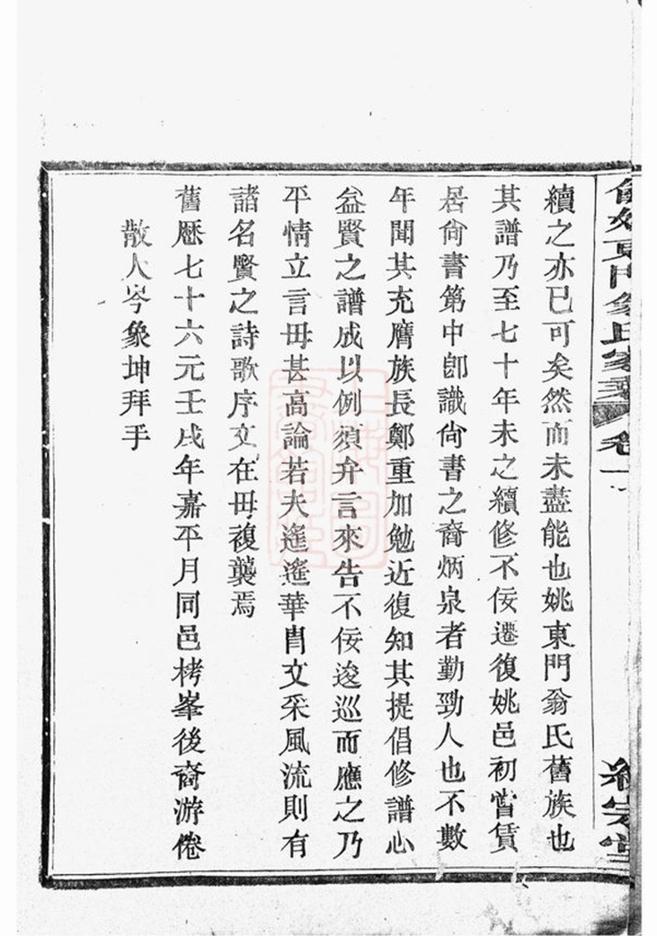 續之亦已可矣然而未盡能也姚東門翁氏舊族也
其譜乃至七十年未之續修不佞遷復姚邑初嘗賃
居尙書第中卽識尙書之裔炳泉者勤勁人也不數
年聞其充膺族長鄭重加勉近復知其提倡修譜心
益賢之譜成以例須弁言來告不佞逡巡而應之乃
平情立言毋甚高論若夫遙遙華胄文采風流則有
諸名賢之詩歌序文在毋複襲焉
舊歷七十六元壬戌年嘉平月同邑栲峯後裔游倦
散人岑象坤拜手